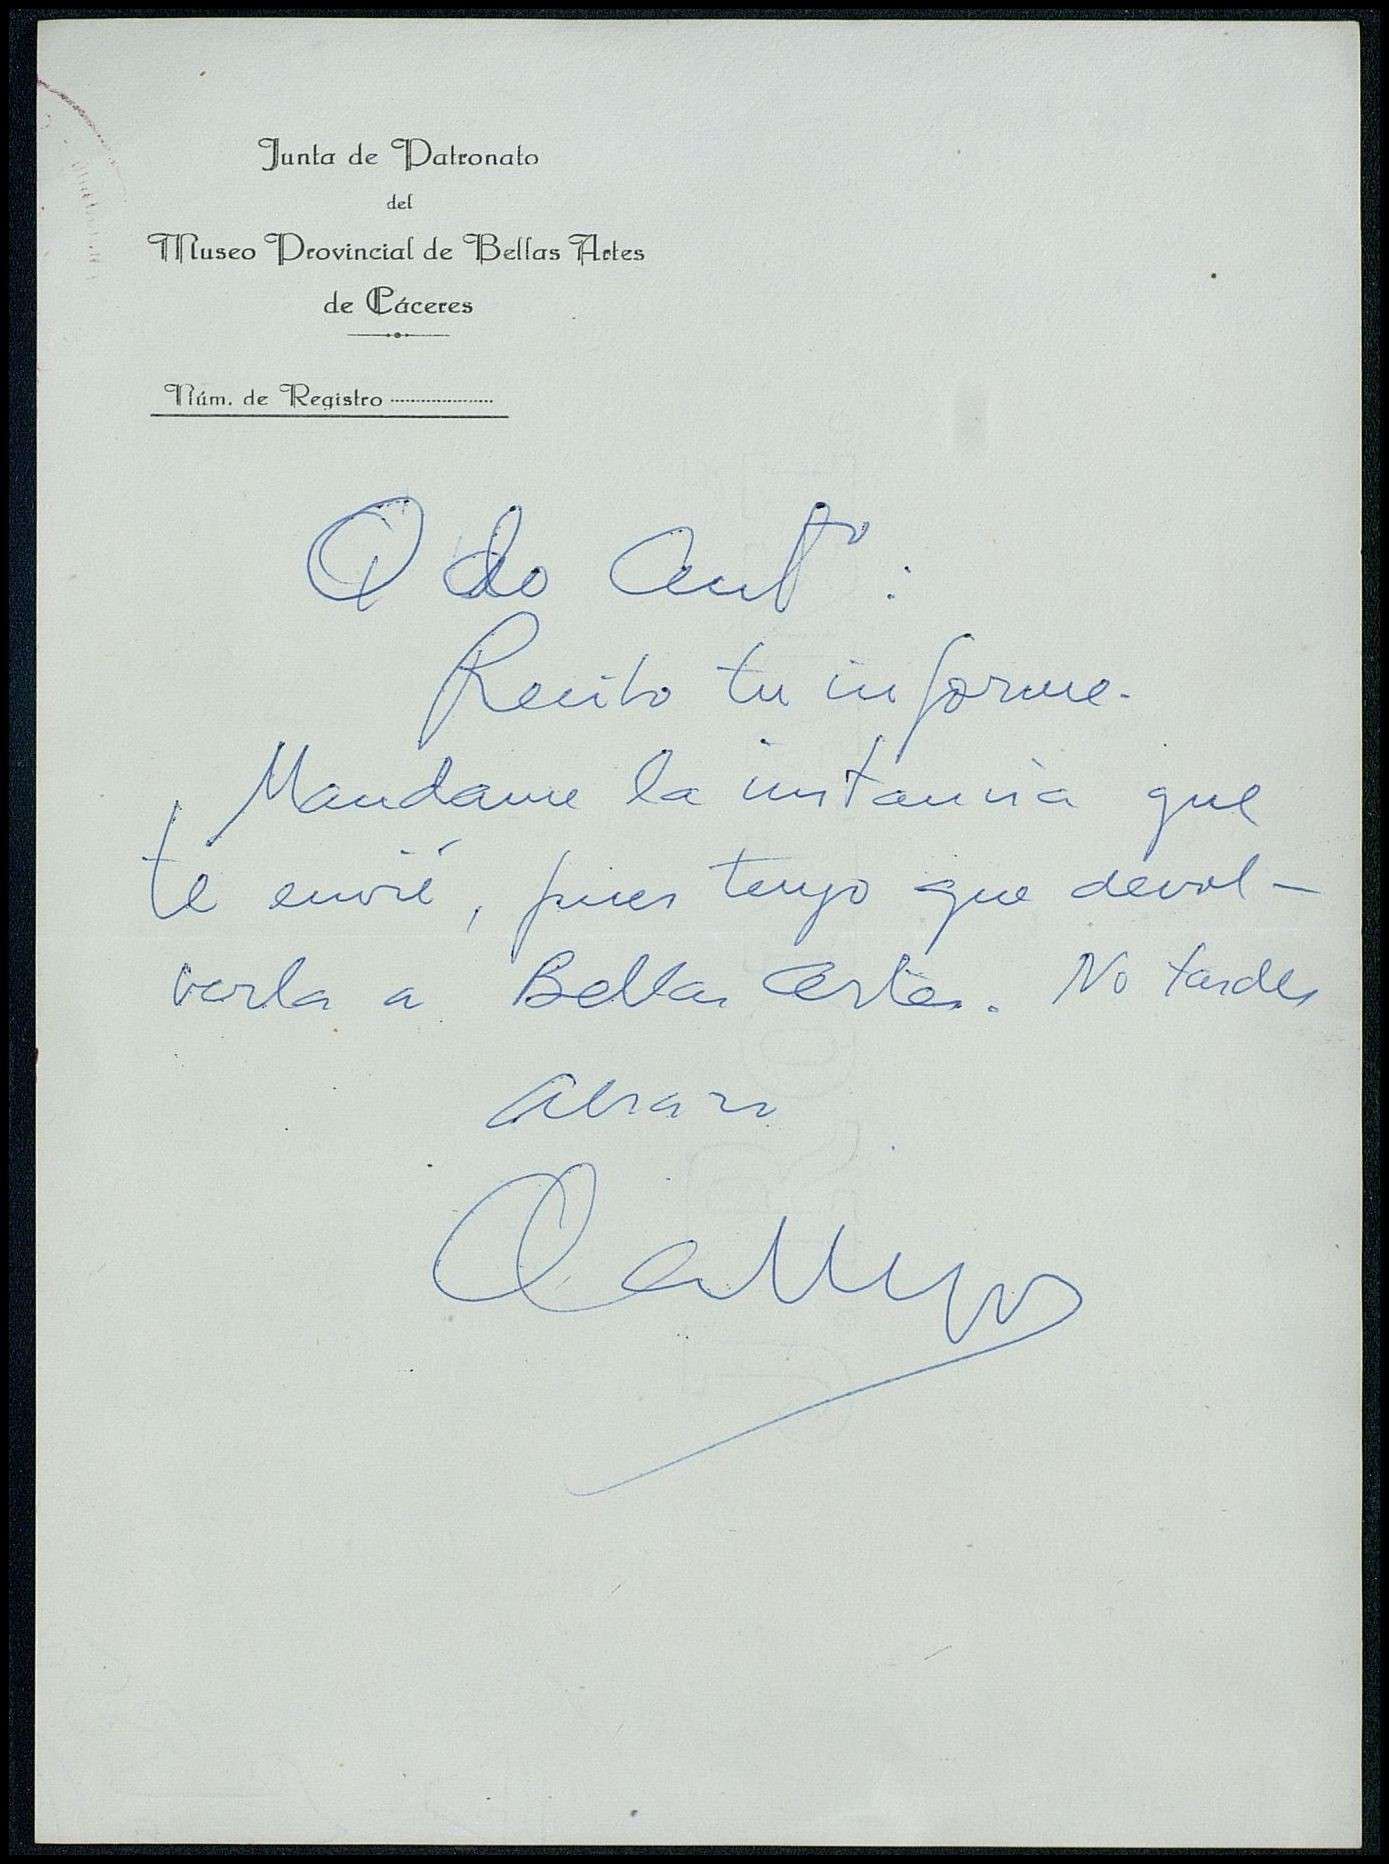 Junta de Patronato
del
Museo Provincial de Bellas Artes
de Cáceres
Núm. de Registro
Qdo Antº:
Recibo tu informe.
Mandame la instancia que
te envié, pues tengo que devol-
verla a Bellas Artes. No tardes
abrazo
Callejo